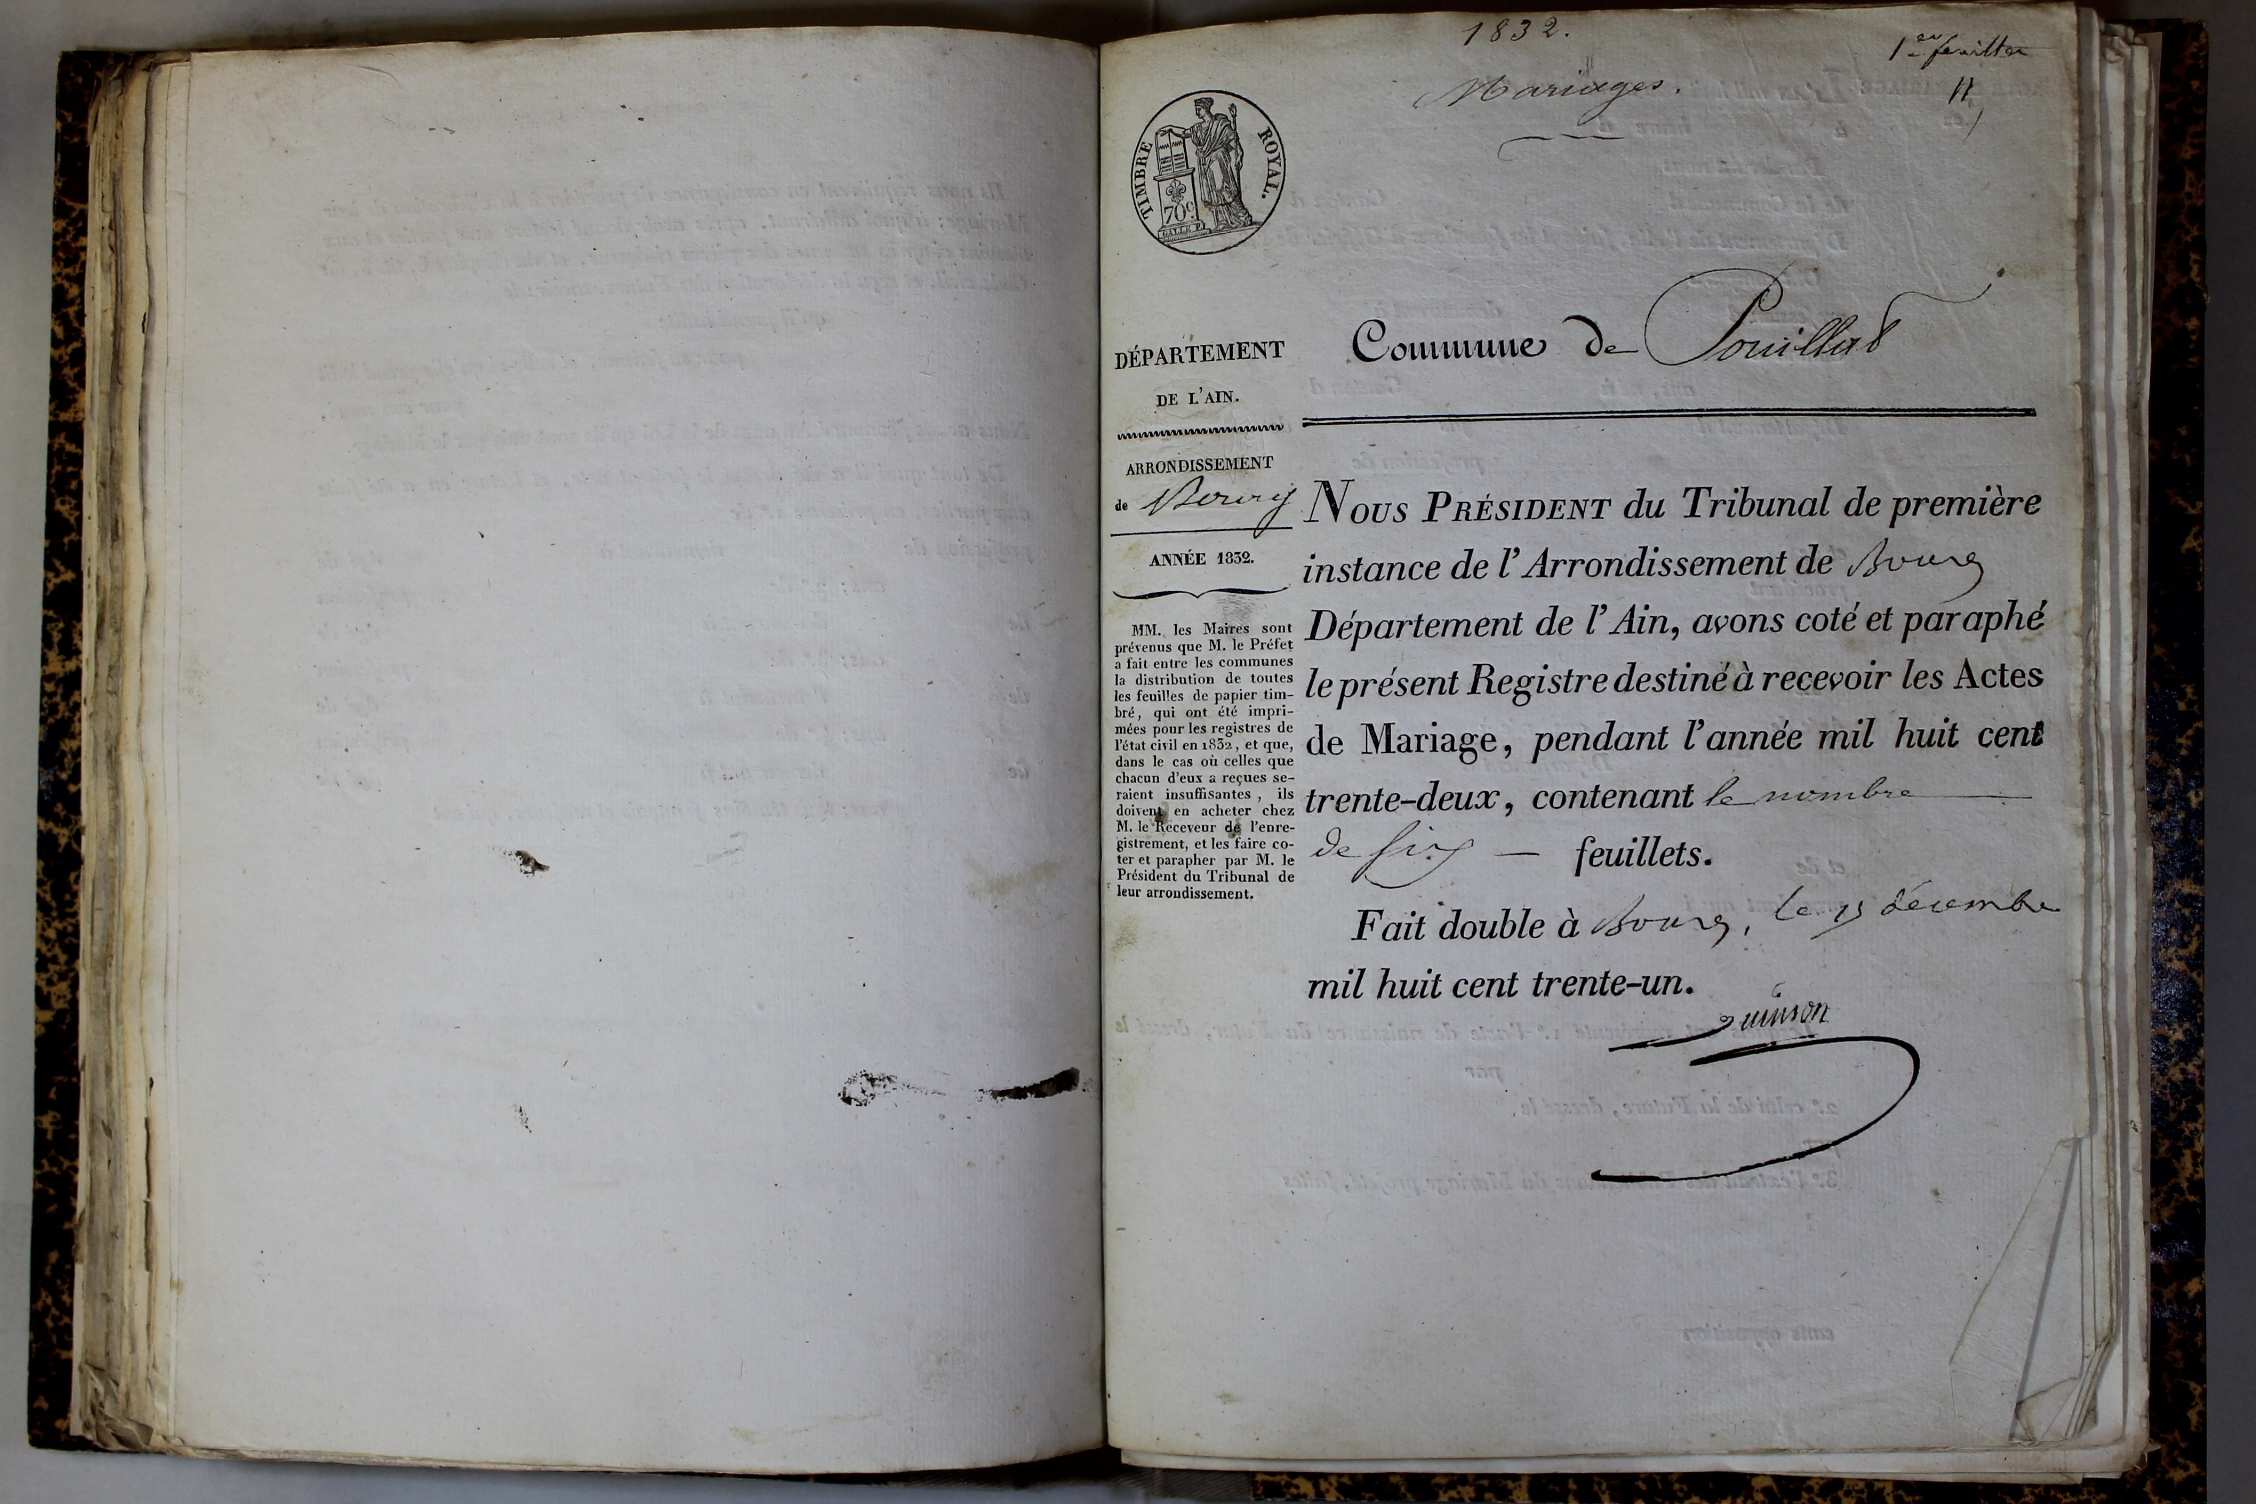 1832.
1er feuillet
Mariages.
TIMBRE ROYAL.
70c.
GALLE F.
DÉPARTEMENT
DE L'AIN.
ARRONDISSEMENT
de Bourg
ANNÉE 1832.
MM. les Maires sont
prévenus que M. le Préfet
a fait entre les communes
la distribution de toutes
les feuilles de papier tim-
bré, qui ont été impri-
mées pour les registres de
l'état civil en 1832, et que,
dans le cas où celles que
chacun d'eux a reçues se-
raient insuffisantes, ils
doivent en acheter chez
M. le Receveur de l'enre-
gistrement, et les faire co-
ter et parapher par M. le
Président du Tribunal de
leur arrondissement.
Commune de Pouillat
NOUS PRÉSIDENT du Tribunal de première
instance de l'Arrondissement de Bourg
Département de l'Ain, avons coté et paraphé
le présent Registre destiné à recevoir les Actes
de Mariage, pendant l'année mil huit cent
trente-deux, contenant le nombre
de six feuillets.
Fait double à Bourg, le 15 décembre
mil huit cent trente-un.
Quinson